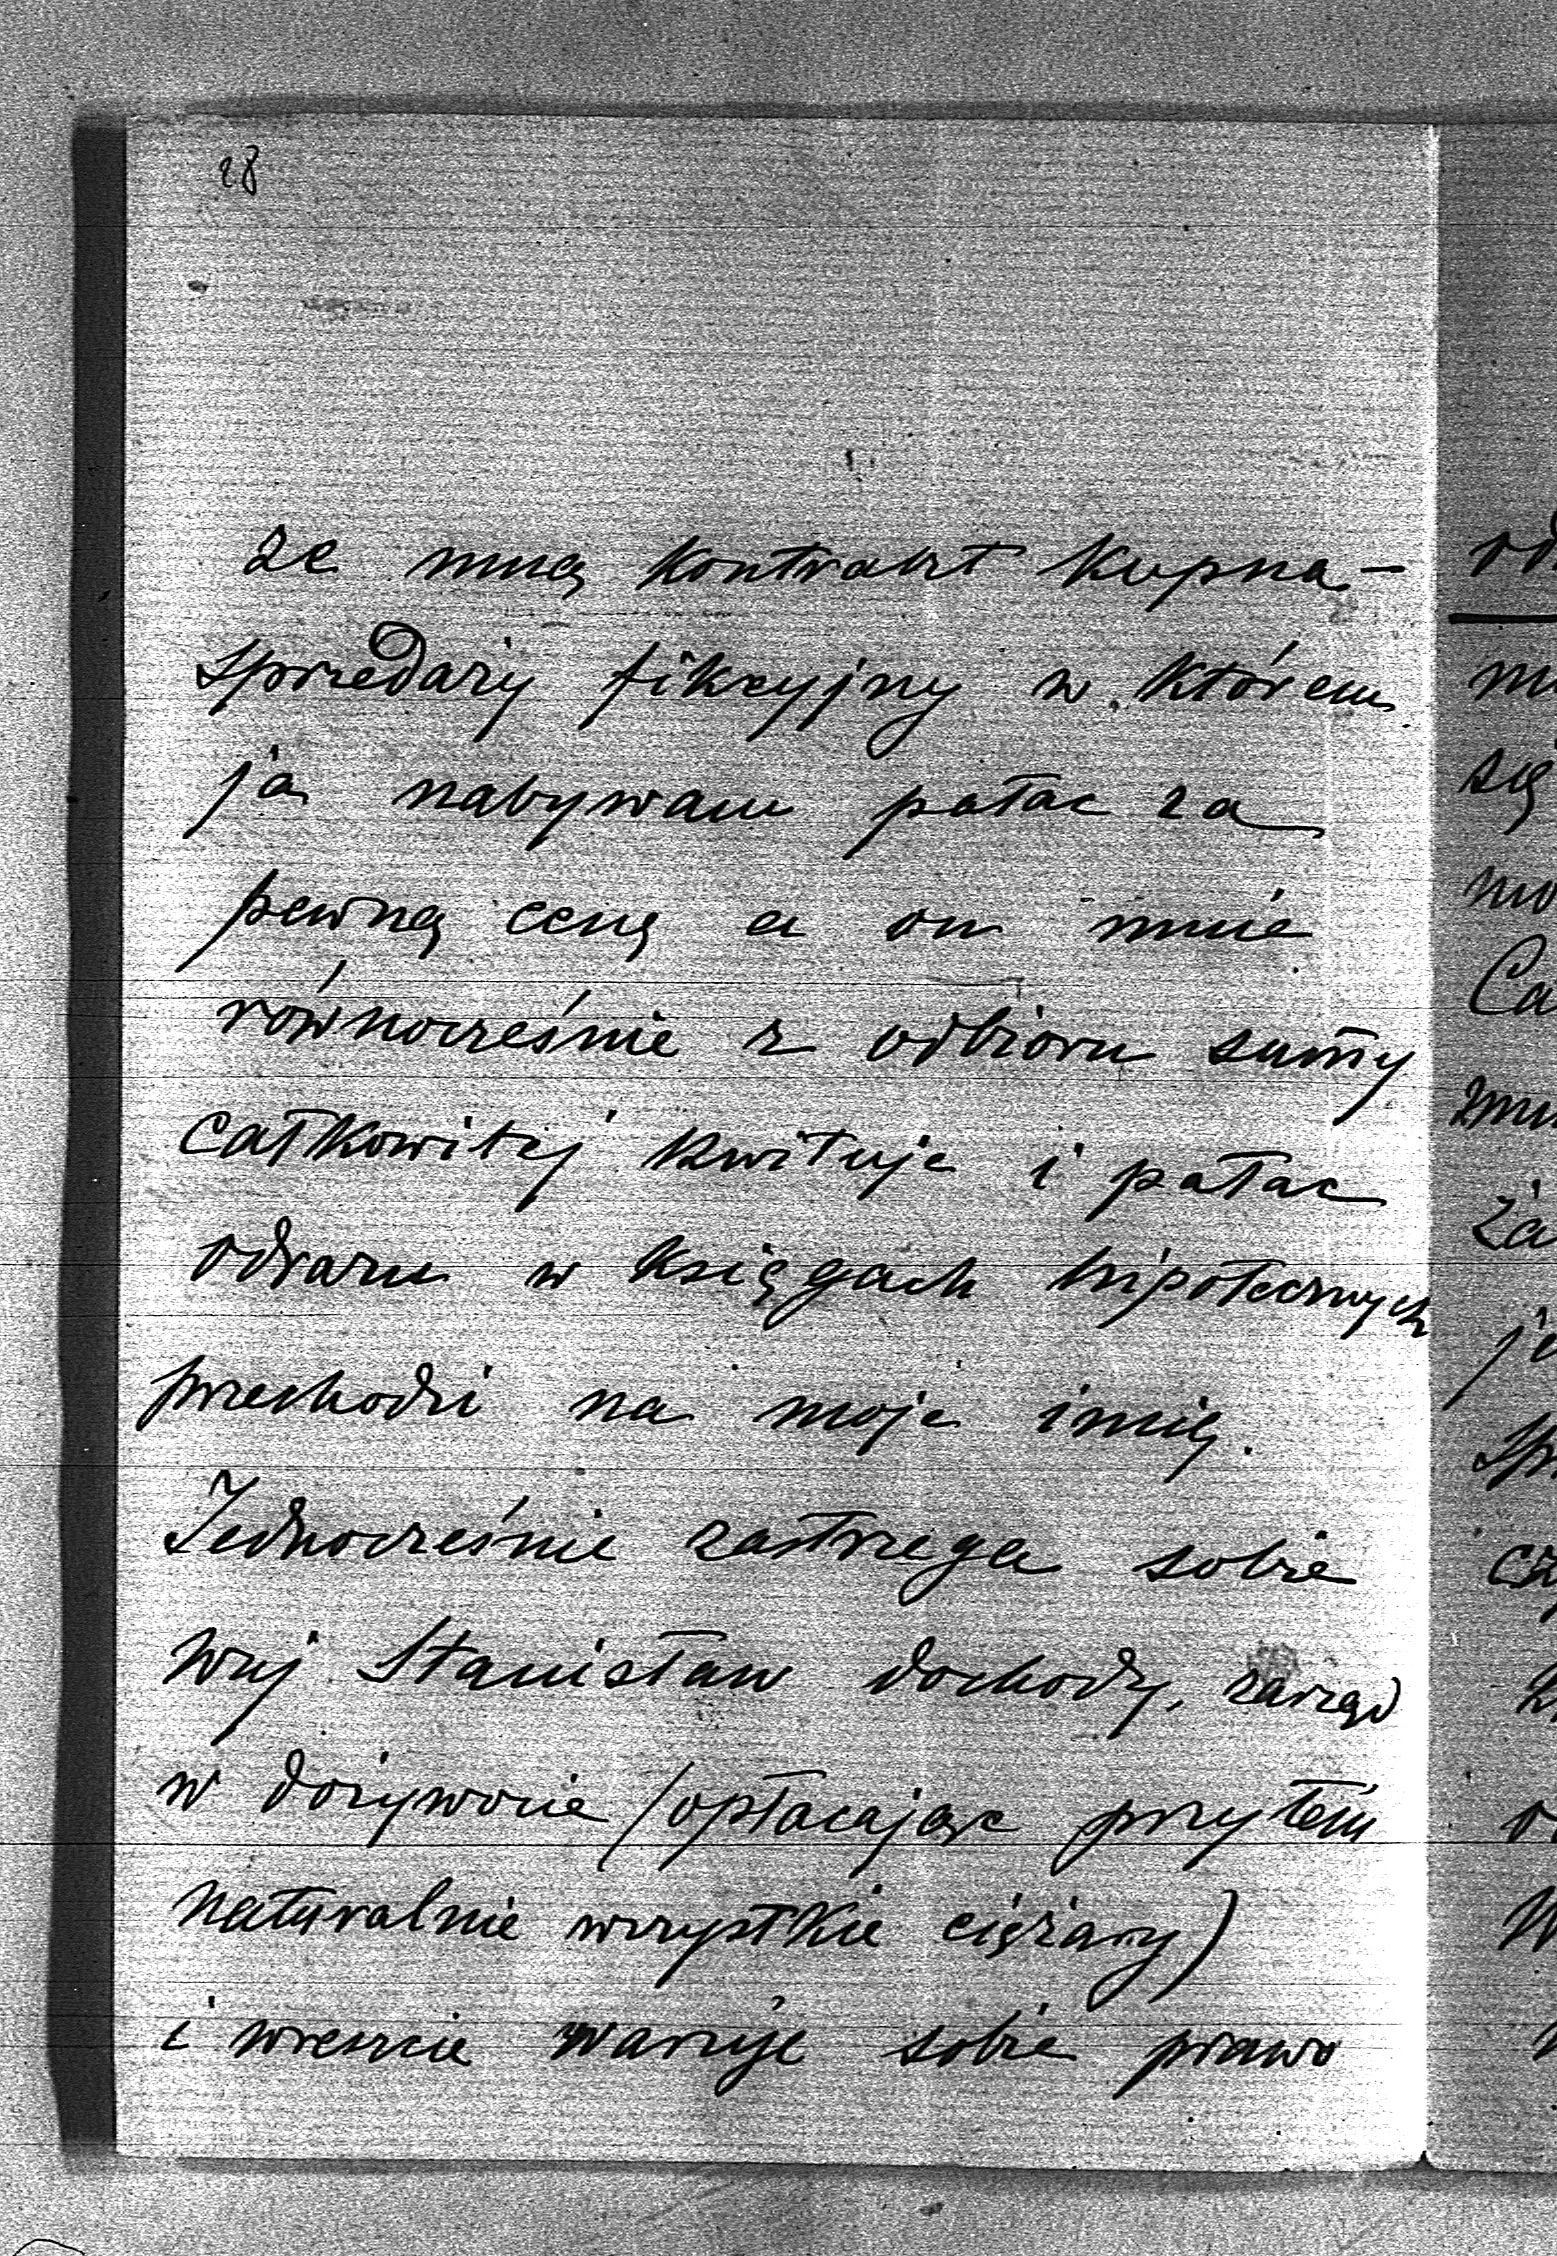 28
ze mną kontrakt kupna-
sprzedaży fikcyjny w którem
ja nabywam pałac za
pewną cenę a on mnie
równocześnie z odbioru sumy
całkowitej kwituje i pałac
odrazu w księgach hipotecznych
przechodzi na moje imię.
Jednocześnie zastrzega sobie
wuj Stanisław dochody, zarząd
w dożywocie (opłacając przytem
naturalnie wszystkie ciężary)
i wreszcie waruje sobie prawo